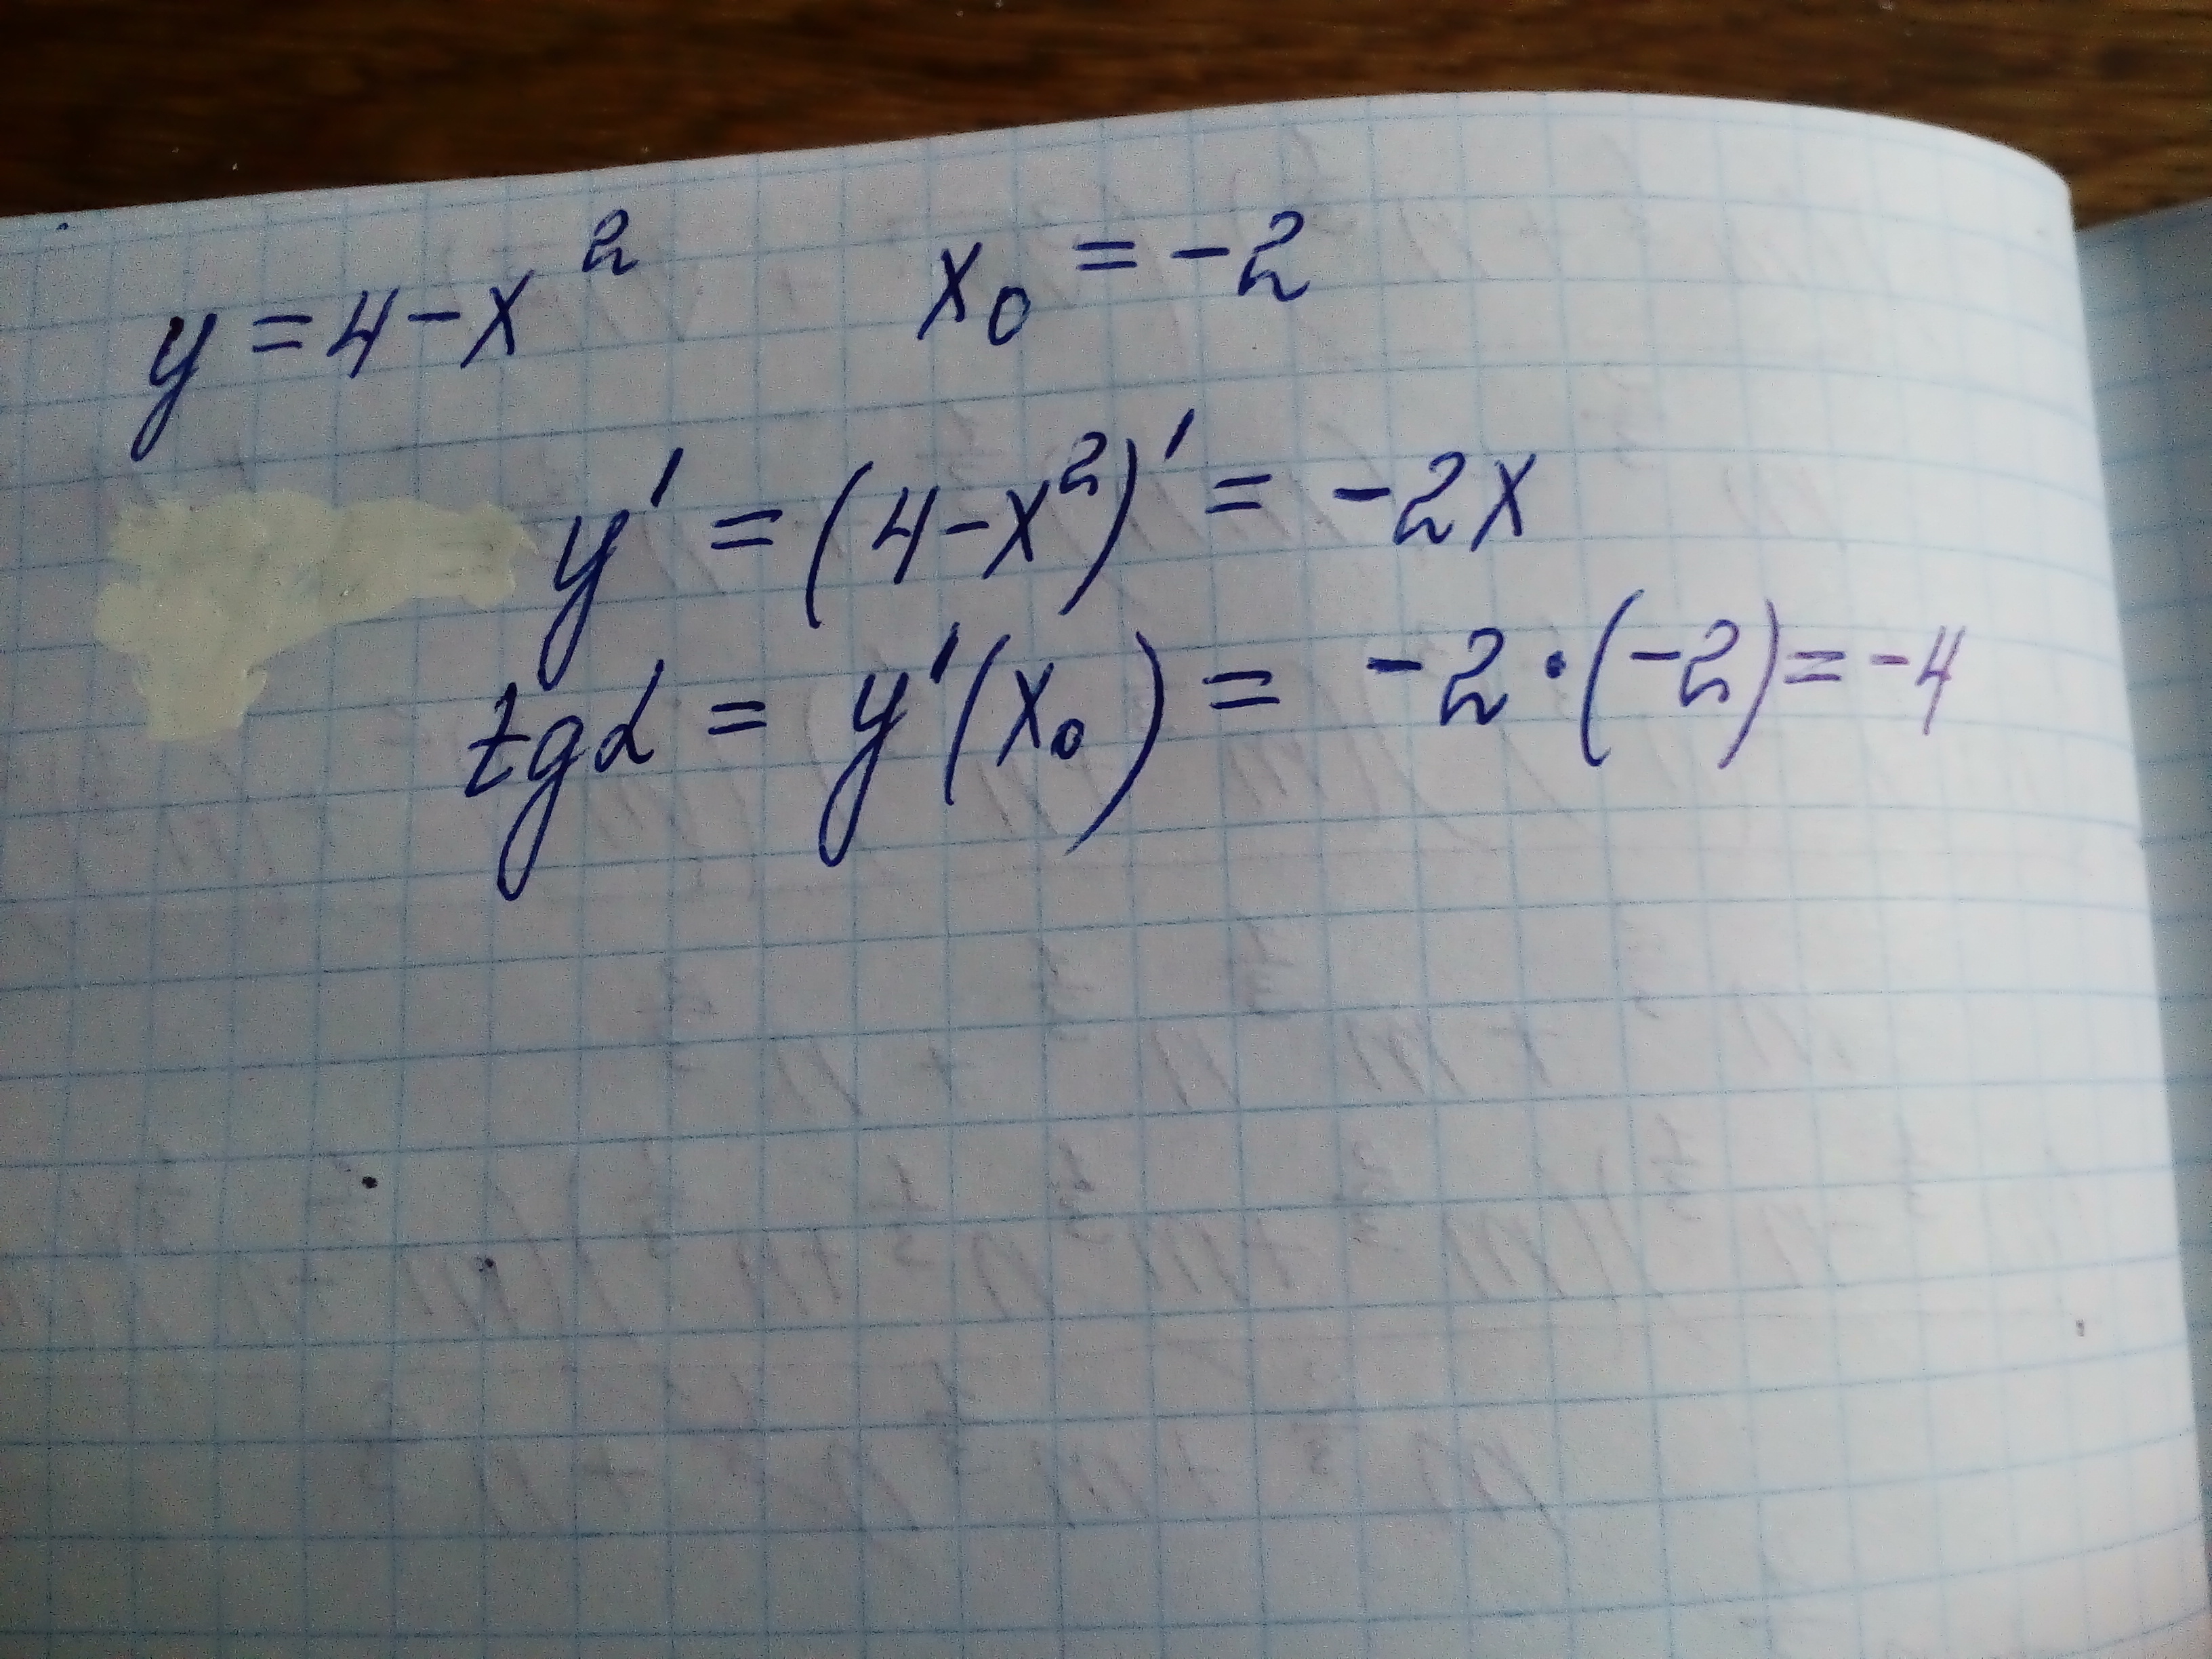 y = 4 - x² x₀ = -2
y' = (4 - x²)' = -2x
tgα = y'(x₀) = -2 · (-2) = -4